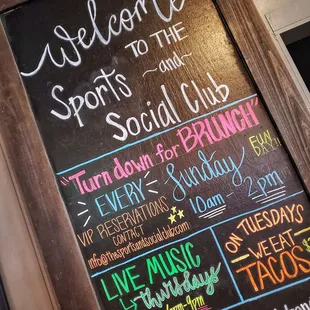 Welcome
TO THE
Sports
~and~
Social Club
"Turn down for BRUNCH"
EVERY Sunday
VIP RESERVATIONS
CONTACT
info@thesportsandsocialclub.com
10am 2pm
LIVE MUSIC
thursdays
6pm-9pm
ON TUESDAYS
WE EAT
TACOS